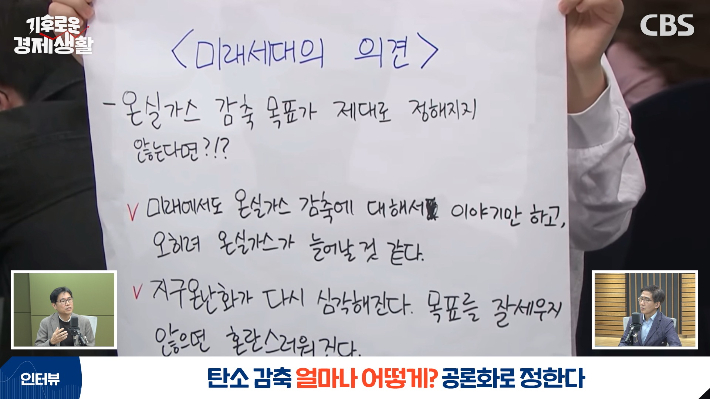 기후로운
경제생활
CBS
<미래세대의 의견>
- 온실가스 감축 목표가 제대로 정해지지
않는다면?!?
✓ 미래에서도 온실가스 감축에 대해서 이야기만 하고,
오히려 온실가스가 늘어날 것 같다.
✓ 지구온난화가 다시 심각해진다. 목표를 잘세우지
않으면 혼란스러워진다.
인터뷰
탄소 감축 얼마나 어떻게? 공론화로 정한다